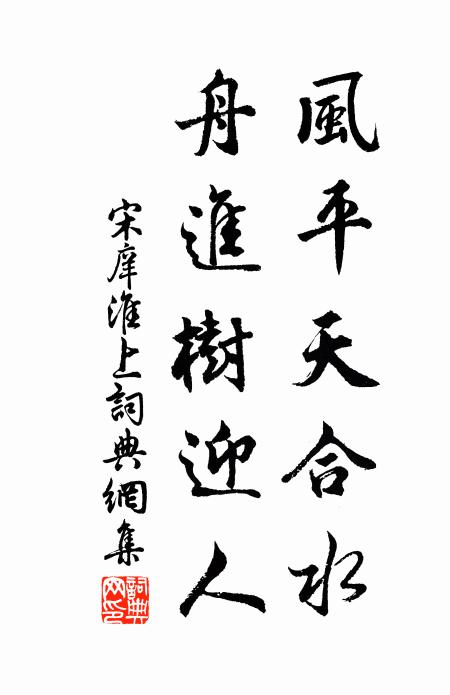 風平天合水
舟進樹迎人
宋庠淮上詞典網集
詞典网印